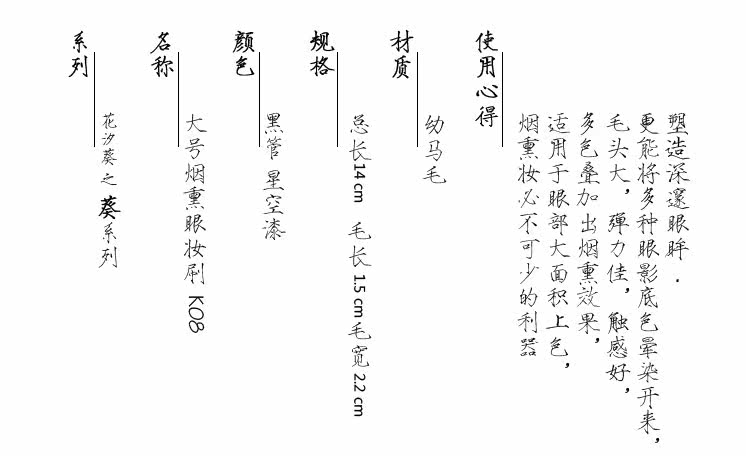 系列
花汐葵之葵系列
名称
大号烟熏眼妆刷 K08
颜色
黑管 星空漆
规格
总长14cm 毛长1.5cm 毛宽2.2cm
材质
幼马毛
使用心得
烟熏妆必不可少的利器
适用于眼部大面积上色，
多色叠加出烟熏效果，
毛头大，弹力佳，触感好，
更能将多种眼影底色晕染开来，
塑造深邃眼眸．